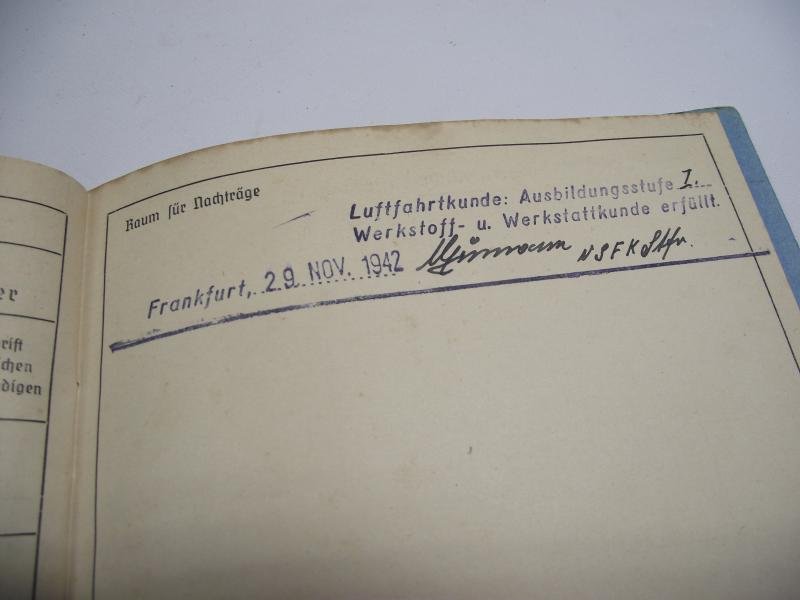 er
rift
chen
digen
Raum für Nachträge
Luftfahrtkunde: Ausbildungsstufe I.
Werkstoff- u. Werkstattkunde erfüllt.
Frankfurt, 29. NOV. 1942 NSFK Stfr.